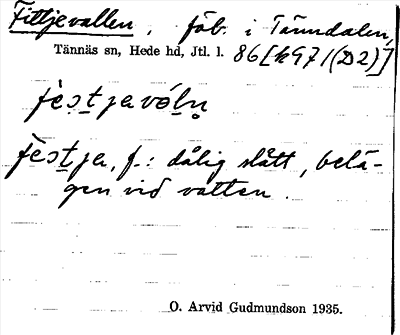 Fittjevallen, fäb. i Tänndalen,
Tännäs sn, Hede hd, Jtl. l. 86[h97/(D2)]
fèstja, f.: dålig slått, belä-
gen vid vatten.
O. Arvid Gudmundson 1935.